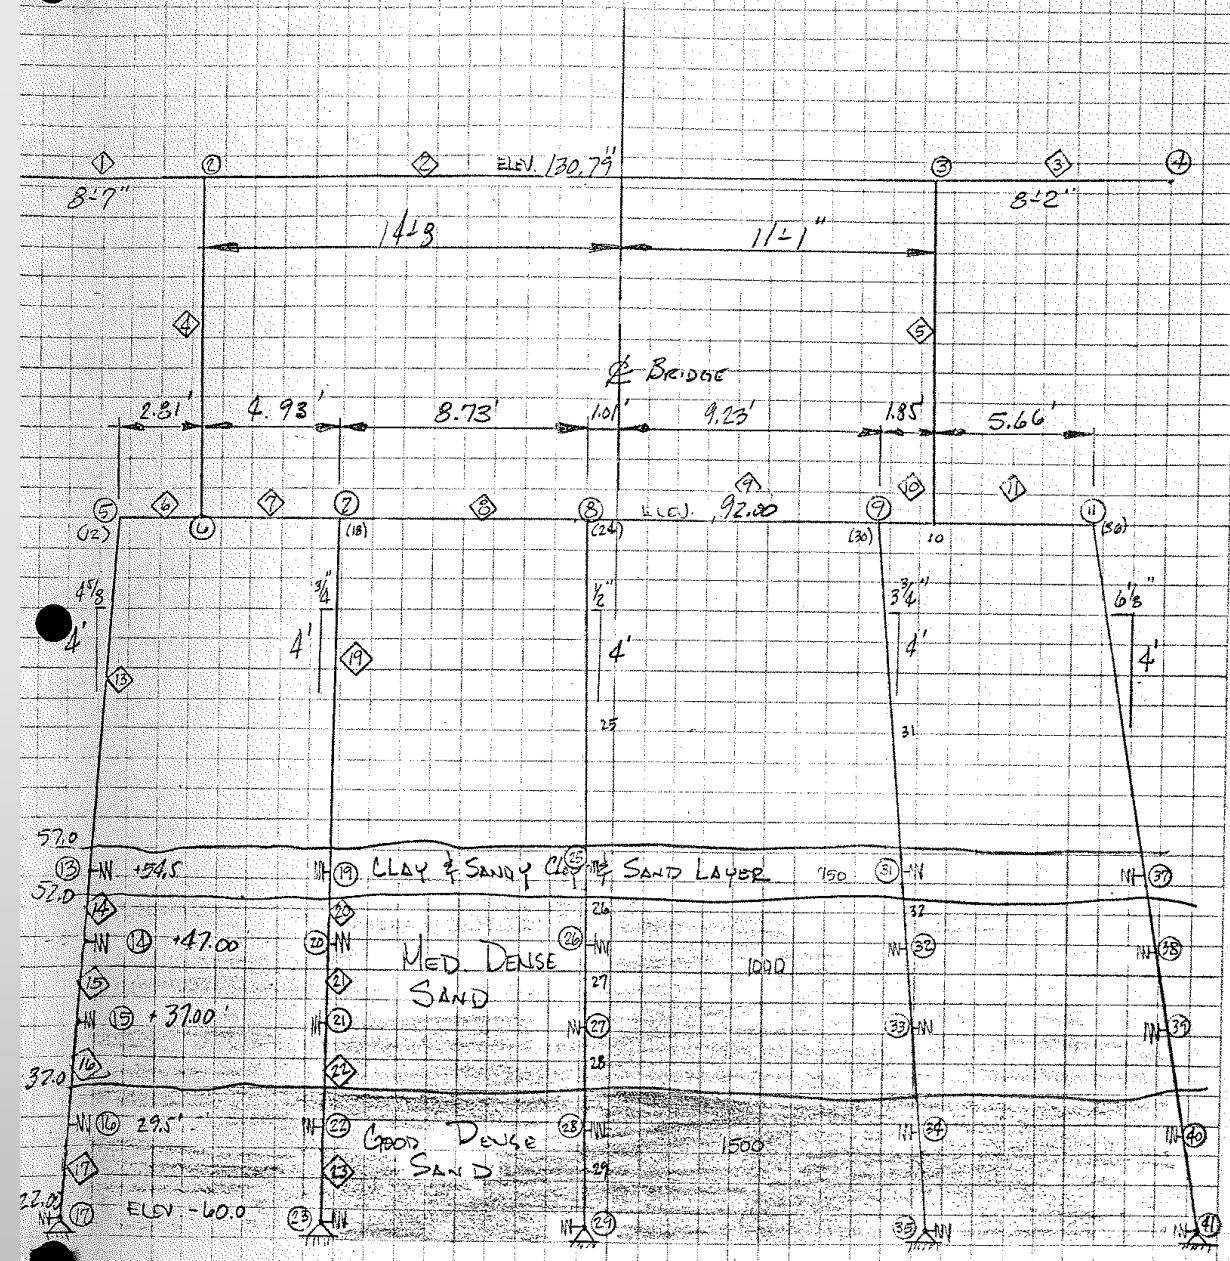 1 2 2 ELEV. 130.79" 3 3 4
8'-7" 8'-2"
14'-8 11'-1"
4 5
℄ BRIDGE
2.81' 4.93' 8.73' 1.01' 9.23' 1.85' 5.66'
5 6 7 7 8 8 ELEV. 92.00 9 9 10 11 11
(12) 6 (18) (24) (30) 10 (36)
4 5/8 3/4" 1/2" 3 3/4" 6 1/8"
4' 4' 4' 4' 4'
13 19
25 31
57.0
13 +54.5 19 CLAY & SANDY CLAY & SAND LAYER 750 31 37
25
52.0
14 20 26 32
14 +47.00 20 MED. DENSE 26 1000 32 38
15 21 SAND 27
15 +37.00' 21 27 33 39
16 22 28
32.0
16 29.5' 22 GOOD DENSE 28 1500 34 40
17 23 SAND 29
22.00
17 ELEV -60.0 23 29 35 41